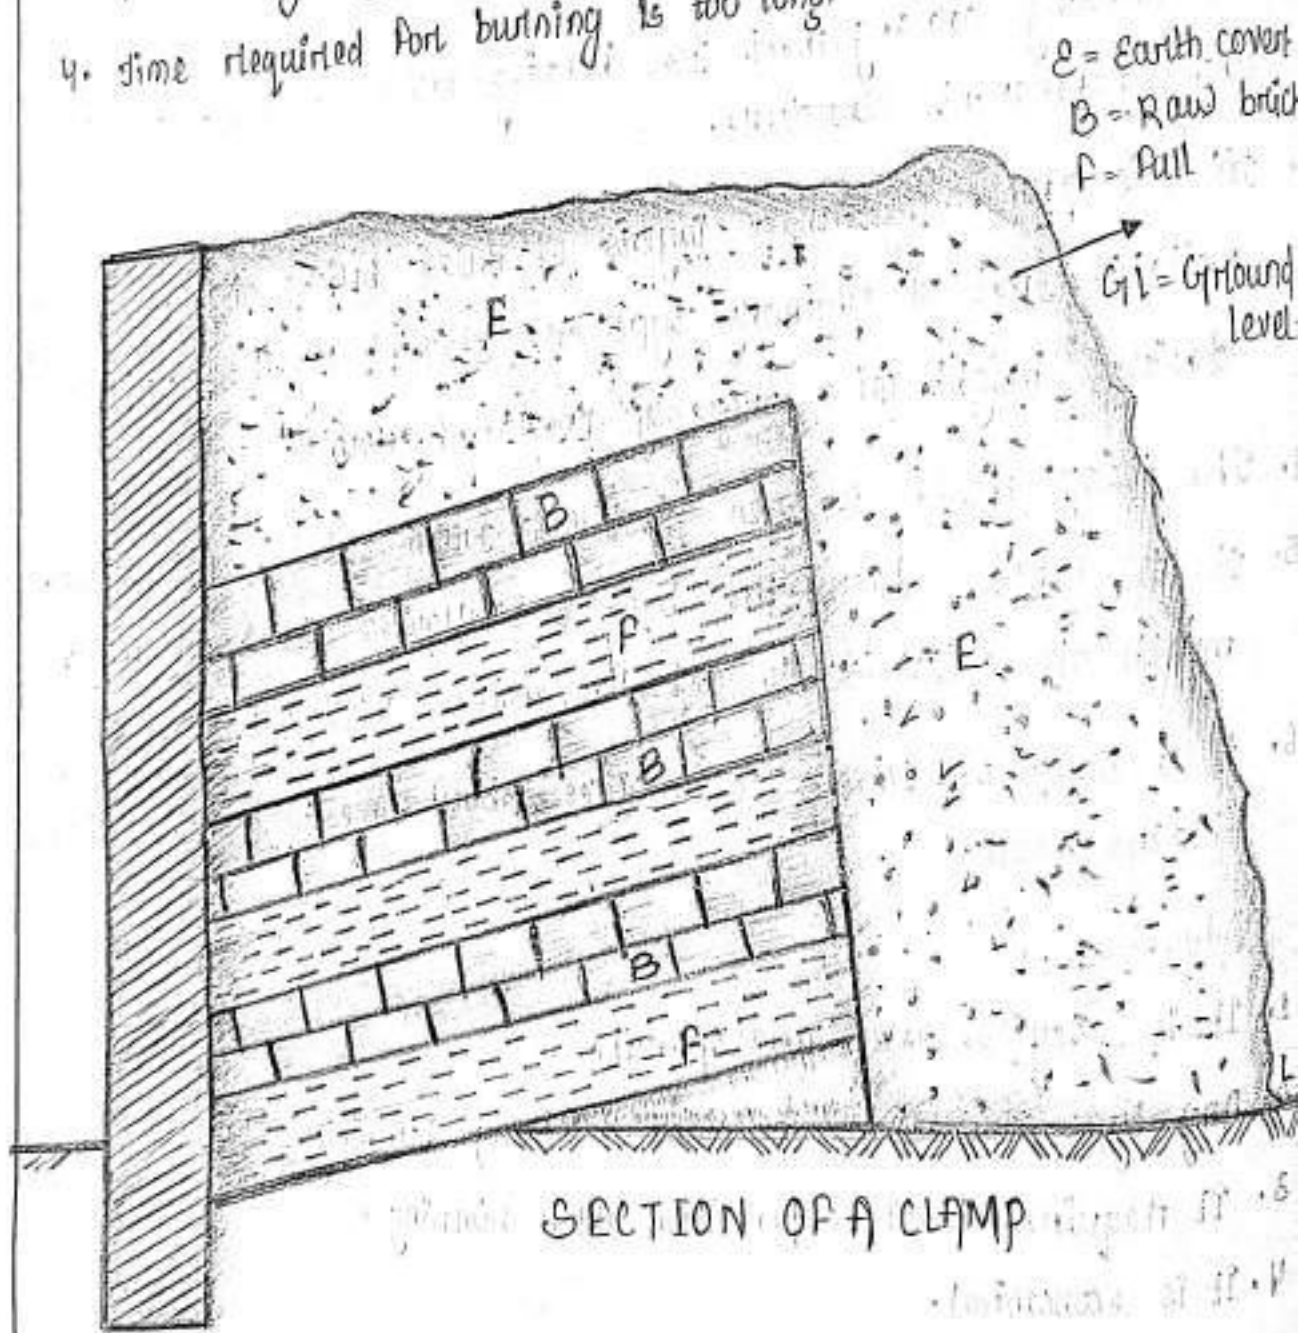 4. Time required for burning is too long.
E = Earth cover
B = Raw brick
F = Full
GL = Ground
level
E
B
F
E
B
B
F
L
SECTION OF A CLAMP